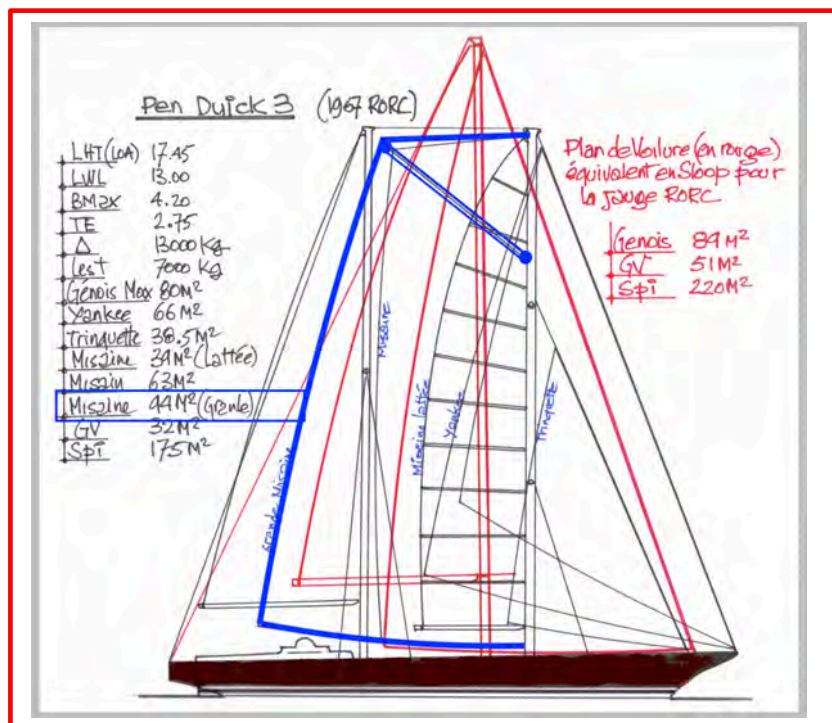 Pen Duick 3 (1967 RORC)
LHT(LOA) 17.45
LWL 13.00
BMax 4.20
TE 2.75
Δ 13000 Kg
Lest 7000 Kg
Génois Max 80M²
Yankee 66M²
Trinquette 38.5M²
Misaine 39M² (Lattée)
Misain 63M²
Misaine 44M² (Grande)
GV 32M²
Spi 175M²
Plan de Voilure (en rouge)
équivalent en Sloop pour
la jauge RORC
Genois 89M²
GV 51M²
Spi 220M²
Misaine
Misaine lattée
Yankee
Trinquette
Grande Misaine